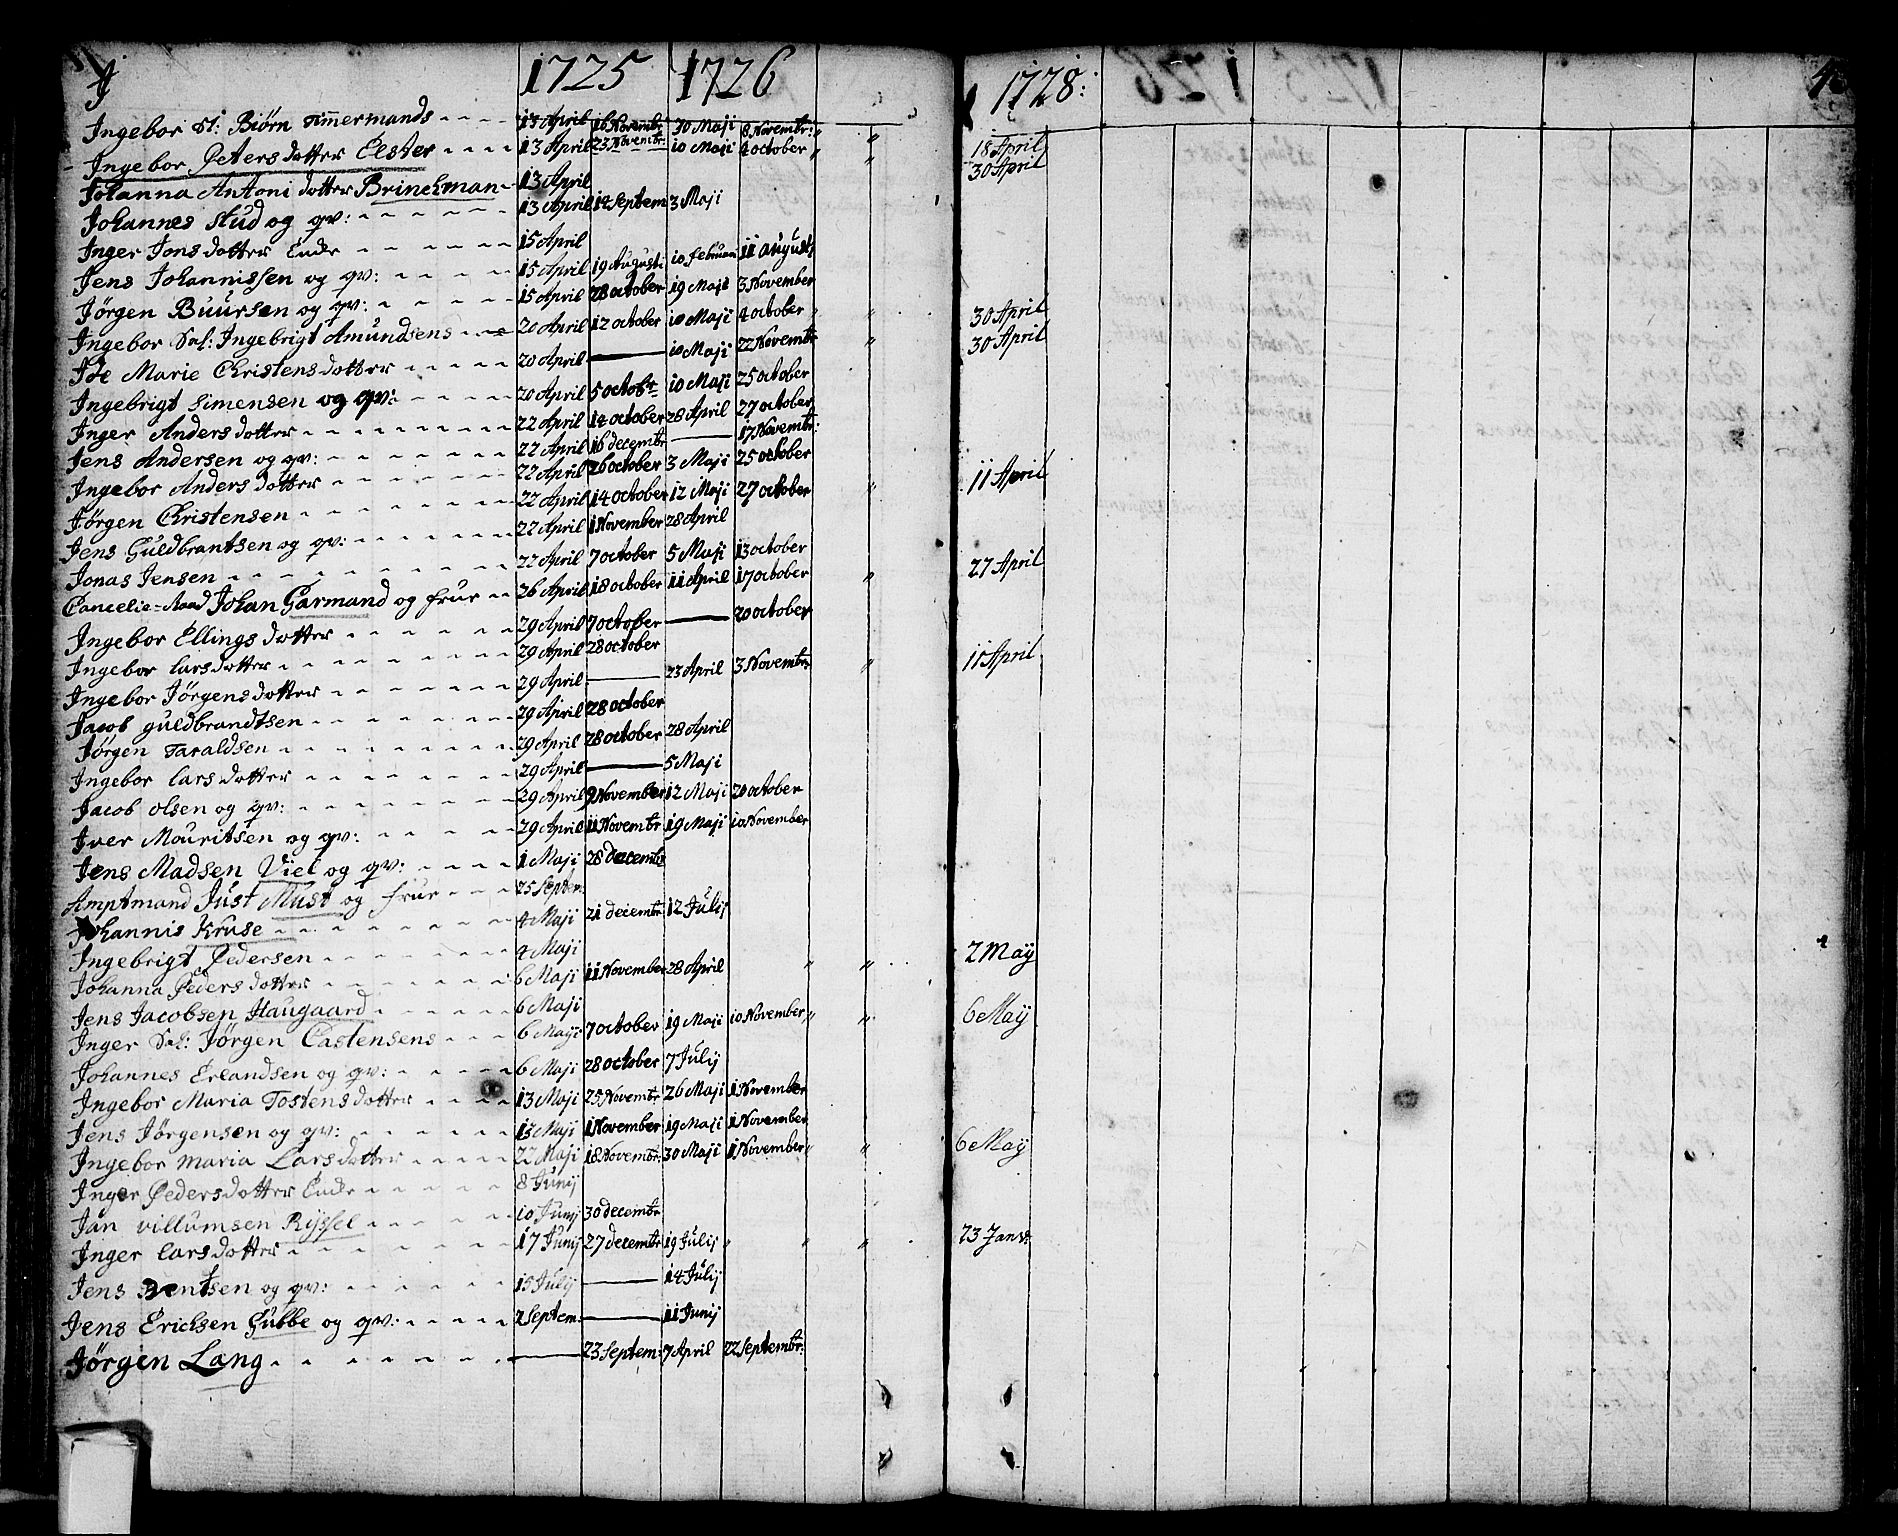 J 1725 1726 1728: 
Ingebor Sl: Biørn Timmermands 13 April 16 Novembr 30 Maji 8 Novembr: " " 18 April
Ingebor Peters dotter Elster 13 April 23 Novembr: 10 Maji 4 october " " 30 April
Johanna Antoni dotter Brinchman 13 April
Johannes Stud og qv: 13 April 14 Septem 3 Maji
Inger Jons dotter Encke 15 April
Jens Johannissen og qv: 15 April 19 Augusti 10 februari 11 augusti
Jørgen Buursen og qv: 15 April 28 october 19 Maji 3 November
Ingebor Sal: Ingebrigt Amundsens 20 April 12 october 10 Maji 4 october " " 30 April
Ide Marie Christens dotter 20 April — 10 Maji 22 Novembr " 30 April
Ingebrigt Simensen og qv: 20 April 5 octobr 10 Maji 25 october
Inger Anders dotter 22 April 14 october 28 April 27 october
Jens Andersen og qv: 22 April 16 decembr — 17 Novembr:
Ingebor Anders dotter 22 April 26 october 3 Maji 25 october
Jørgen Christensen 22 April 14 october 12 Maji 27 october " 11 April
Jens Guldbrantsen og qv: 22 April 1 November 28 April
Jonas Jensen 22 April 7 october 5 Maji 13 october
Cancelie-Raad Johan Garmand og frue 26 April 18 october 11 April 17 october " 27 April
Ingebor Ellings dotter 29 April 7 october — 20 october
Ingebor Lars dotter 29 April 28 october
Ingebor Jørgens dotter 29 April — 23 April 3 Novembr: " 11 April
Jacob guldbrandtsen 29 April 28 october
Jørgen Taraldsen 29 April 28 october 28 April
Ingebor Lars dotter 29 April — 5 Maji
Jacob olsen og qv: 29 April 9 November 12 Maji 20 october
Iver Mouritsen og qv: 29 April 11 Novembr 19 Maji 10 November
Jens Madsen Viel og qv: 1 Maji 28 decembr
Amptmand Just Must og frue 25 Septem:
Johannis Kruse 4 Maji 21 decembr: 12 Julij
Ingebrigt Pedersen 4 Maji
Johanna Peders dotter 6 Maji 11 November 28 April " " 2 Maÿ
Jens Jacobsen Haugaard 6 Maji
Inger Sal: Jørgen Castensens 6 Maji 7 october 19 Maji 10 November " " 6 Maÿ
Johannes Erlandsen og qv: 6 Maji 28 october 7 Julij
Ingebor Maria Tostens dotter 13 Maji 25 Novembr: 26 Maji 1 November
Jens Jørgensen og qv: 13 Maji 1 November 19 Maji 1 November
Ingebor maria Lars dotter 22 Maji 18 Novembr: 30 Maji 1 November " " 6 Maÿ
Inger Peders dotter Encke 8 Junij
Jan villumsen Rijssel 10 Junij 30 decembr
Inger Lars dotter 17 Junij 27 decembr 19 Julij " " " 23 Janv:
Jens Bentsen og qv: 15 Julij — 14 Julij
Jens Erichsen Gubbe og qv: 2 Septem: — 11 Junij
Jørgen Lang — 23 Septem: 7 April 22 Septembr: